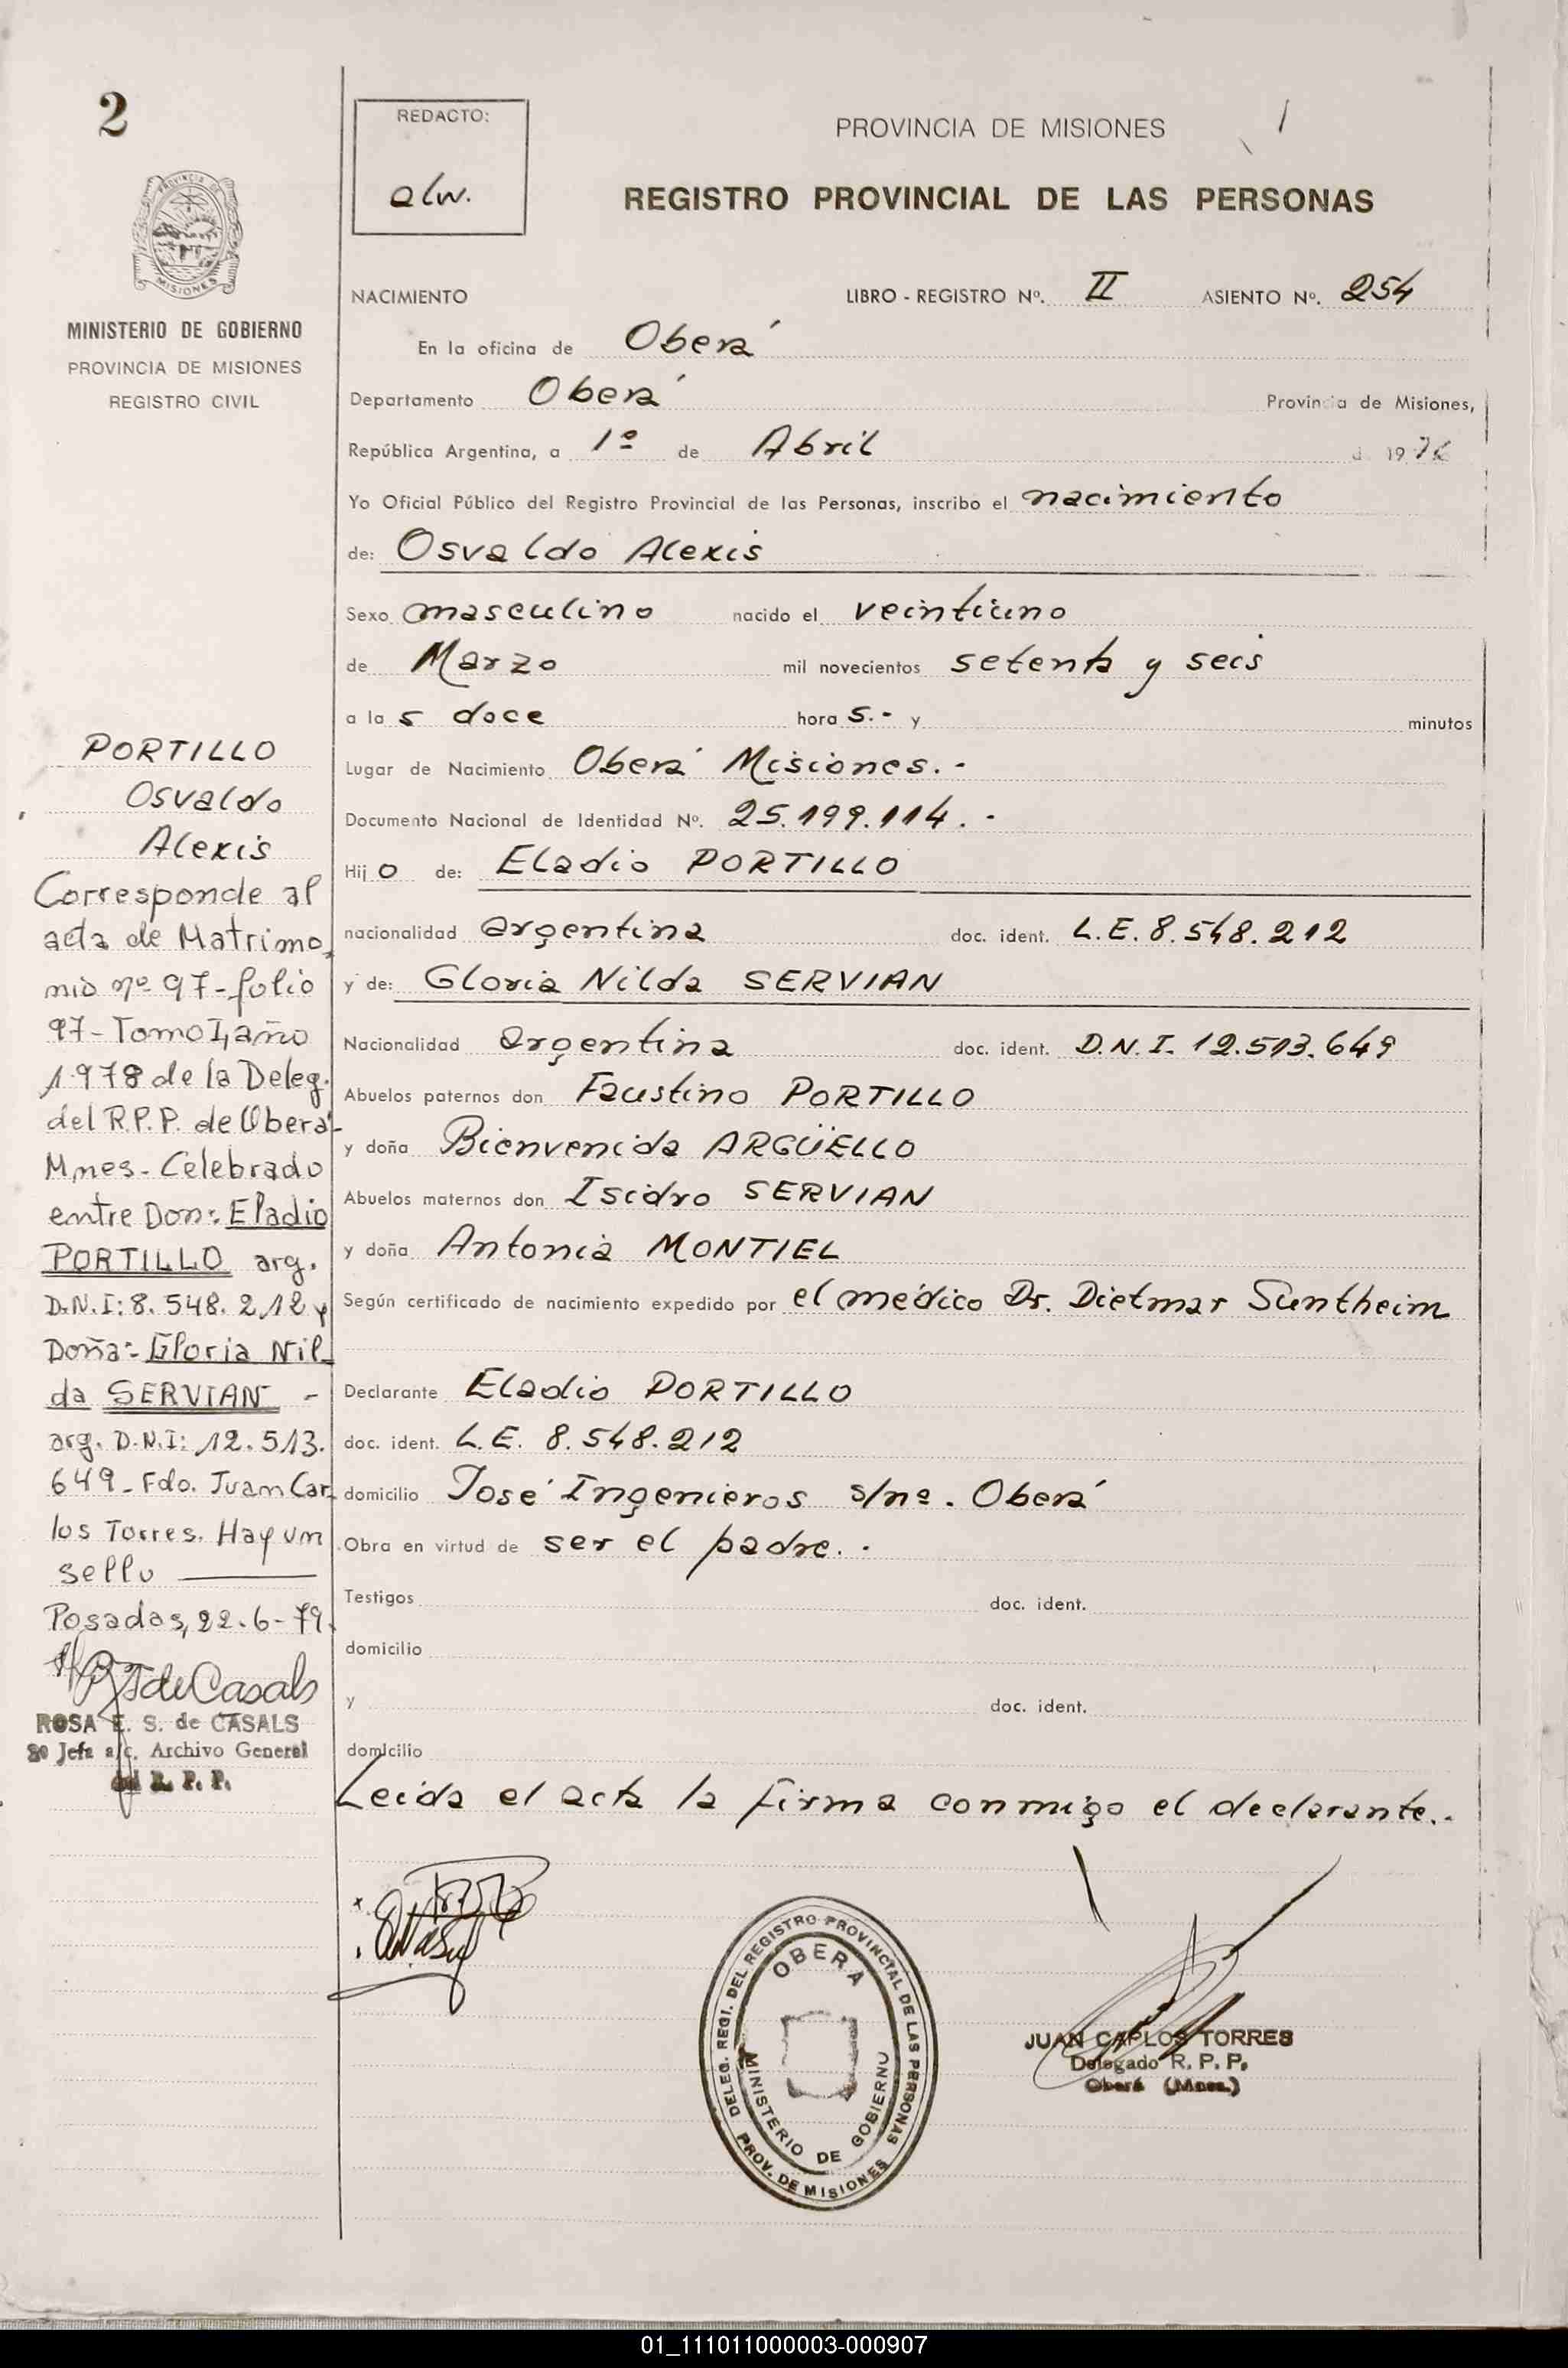 2
PROVINCIA DE
MISIONES
MINISTERIO DE GOBIERNO
PROVINCIA DE MISIONES
REGISTRO CIVIL
PORTILLO
Osvaldo
Alexis
Corresponde al
acta de Matrimo-
nio nº 97-folio
97-Tomo I, año
1978 de la Deleg.
del R.P.P. de Oberá-
Mnes-Celebrado
entre Don: Eladio
PORTILLO arg.
D.N.I: 8.548.212 y
Doña: Gloria Nil-
da SERVIAN -
arg. D.N.I: 12.513.
649-Fdo. Juan Car-
los Torres. Hay un
sello
Posadas, 22-6-79.
de Casals
ROSA E. S. de CASALS
2º Jefa a/c. Archivo General
del R. P. P.
REDACTO:
alw.
PROVINCIA DE MISIONES
REGISTRO PROVINCIAL DE LAS PERSONAS
NACIMIENTO LIBRO - REGISTRO Nº. II ASIENTO Nº. 254
En la oficina de Oberá
Departamento Oberá Provincia de Misiones,
República Argentina, a 1º de Abril d 1976
Yo Oficial Público del Registro Provincial de las Personas, inscribo el nacimiento
de: Osvaldo Alexis
Sexo masculino nacido el veintiuno
de Marzo mil novecientos setenta y seis
a la s doce hora s.- y minutos
Lugar de Nacimiento Oberá Misiones.-
Documento Nacional de Identidad Nº. 25.199.114.-
Hij o de: Eladio PORTILLO
nacionalidad argentina doc. ident. L.E. 8.548.212
y de: Gloria Nilda SERVIAN
Nacionalidad argentina doc. ident. D.N.I. 12.513.649
Abuelos paternos don Faustino PORTILLO
y doña Bienvenida ARGÜELLO
Abuelos maternos don Isidro SERVIAN
y doña Antonia MONTIEL
Según certificado de nacimiento expedido por el médico Dr. Dietmar Suntheim
Declarante Eladio PORTILLO
doc. ident. L.E. 8.548.212
domicilio José Ingenieros s/nº. Oberá
Obra en virtud de ser el padre.-
Testigos doc. ident.
domicilio
y doc. ident.
domicilio
Leída el acta la firma conmigo el declarante.-
DELEG. REGI. DEL REGISTRO PROVINCIAL DE LAS PERSONAS
PROV. DE MISIONES
OBERA
MINISTERIO DE GOBIERNO
JUAN CARLOS TORRES
Delegado R. P. P.
Oberá (Mnes.)
01_111011000003-000907